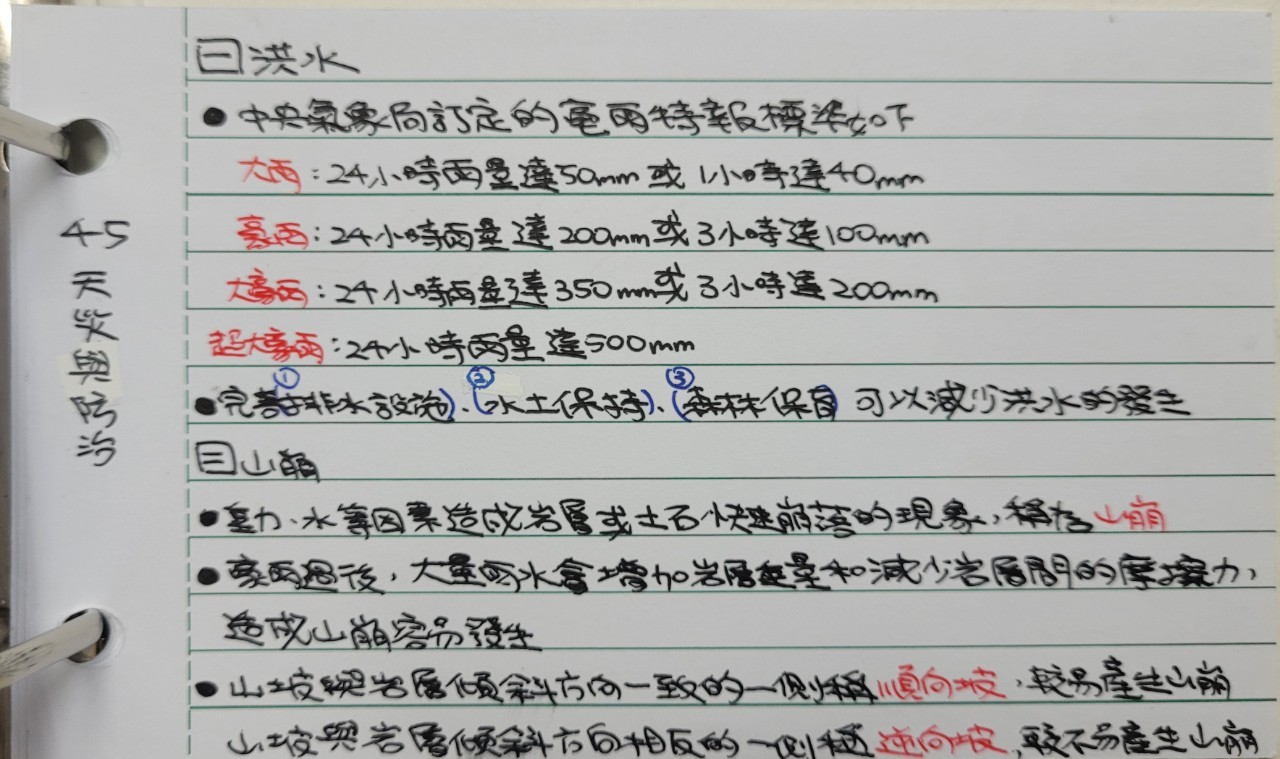 45 天災與防治
二洪水
●中央氣象局訂定的豪雨特報標準如下
大雨:24小時雨量達50mm或1小時達40mm
豪雨:24小時雨量達200mm或3小時達100mm
大豪雨:24小時雨量達350mm或3小時達200mm
超大豪雨:24小時雨量達500mm
① ② ③
●完善排水設施)、(水土保持)、(森林保育)可以減少洪水的發生
三山崩
●重力、水等因素造成岩層或土石快速崩落的現象,稱為山崩
●豪雨過後,大量雨水會增加岩層重量和減少岩層間的摩擦力,
造成山崩容易發生
●山坡與岩層傾斜方向一致的一側稱順向坡,較易產生山崩
山坡與岩層傾斜方向相反的一側稱逆向坡,較不易產生山崩